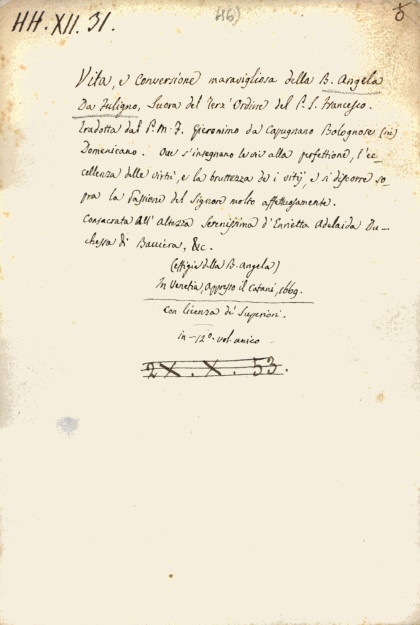 HH.XII.31.
46)
Vita, e Conversione maravigliosa della B. Angela
Da Fuligno, Suora del Terz' Ordine del P. S. Francesco.
Tradotta dal P. M. F. Gieronimo da Capugnano Bolognese (sic)
Domenicano. Ove s'insegnano le vie alla perfettione, l'ec-
cellenza delle virtù, e la bruttezza de i vitij, e si discorre so-
pra la Passione del Signore molto affettuosamente.
Consacrata All' Altezza Serenissima d'Enrietta Adelaida Du-
chessa di Baviera, &c.
(effigie della B. Angela)
In Venetia, appresso il Catani, 1669.
con licenza de' Superiori.
in-12°. vol. unico
2X.X.53.